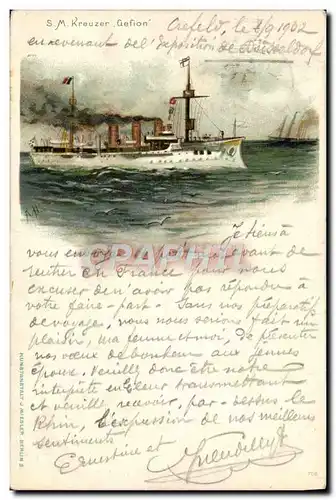 S. M. Kreuzer „Gefion"
Crefeld, le 8/9 1902
en revenant de l'Exposition de Dusseldorf
Je tiens à
vous envoyer avant de
rentrer en France pour nous
excuser de n'avoir pas répondu à
votre faire-part. Sans nos préparatifs
de voyage, nous nous serions fait un
plaisir, ma femme et moi, de présenter
nos vœux de bonheur aux jeunes
époux. Veuillez donc être notre
interprète en leur transmettant
et veuillez recevoir, par-dessus le
Rhin, l'expression de nos meilleurs
sentiments
Ernestine et
KUNSTANSTALT J. MIESLER, BERLIN S.